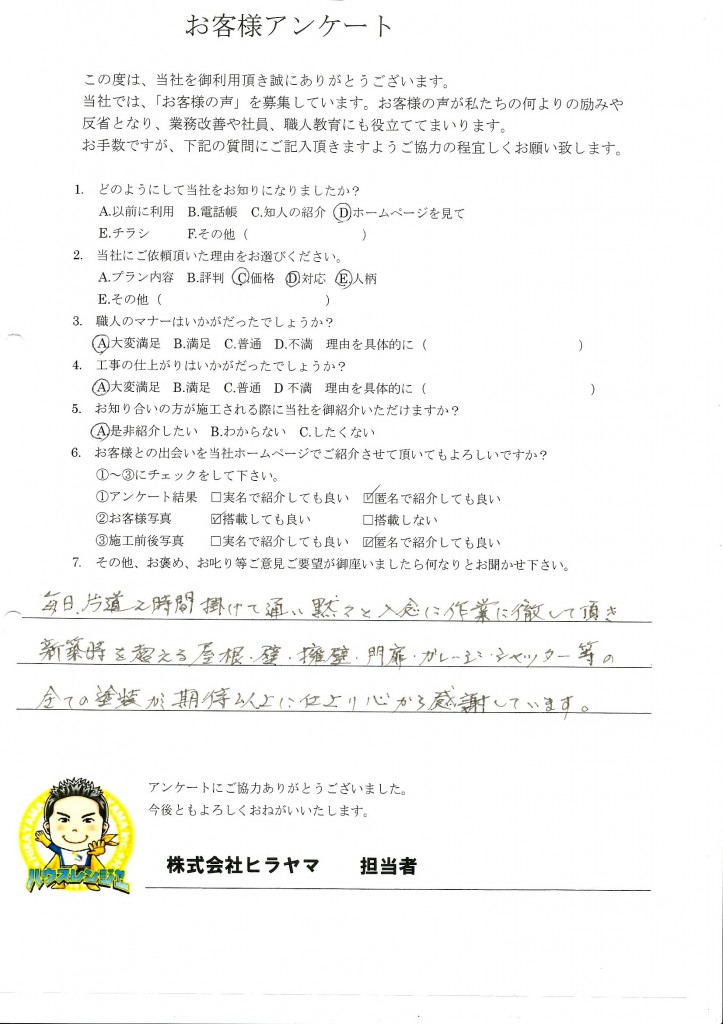 お客様アンケート
この度は、当社を御利用頂き誠にありがとうございます。
当社では、「お客様の声」を募集しています。お客様の声が私たちの何よりの励みや
反省となり、業務改善や社員、職人教育にも役立ててまいります。
お手数ですが、下記の質問にご記入頂きますようご協力の程宜しくお願い致します。
1. どのようにして当社をお知りになりましたか？
A.以前に利用 B.電話帳 C.知人の紹介 D.ホームページを見て
E.チラシ F.その他（ ）
2. 当社にご依頼頂いた理由をお選びください。
A.プラン内容 B.評判 C.価格 D.対応 E.人柄
E.その他（ ）
3. 職人のマナーはいかがだったでしょうか？
A.大変満足 B.満足 C.普通 D.不満 理由を具体的に（ ）
4. 工事の仕上がりはいかがだったでしょうか？
A.大変満足 B.満足 C.普通 D 不満 理由を具体的に（ ）
5. お知り合いの方が施工される際に当社を御紹介いただけますか？
A.是非紹介したい B.わからない C.したくない
6. お客様との出会いを当社ホームページでご紹介させて頂いてもよろしいですか？
①～③にチェックをして下さい。
①アンケート結果 □実名で紹介しても良い ☑匿名で紹介しても良い
②お客様写真 ☑搭載しても良い □搭載しない
③施工前後写真 □実名で紹介しても良い ☑匿名で紹介しても良い
7. その他、お褒め、お叱り等ご意見ご要望が御座いましたら何なりとお聞かせ下さい。
毎日、片道2時間掛けて通い黙々と入念に作業に徹して頂き
新築時を超える屋根・壁・擁壁・門扉・ガレージ・シャッター等の
全ての塗装が期待以上に仕上り心から感謝しています。
アンケートにご協力ありがとうございました。
今後ともよろしくおねがいいたします。
ハウスレンジャー
株式会社ヒラヤマ 担当者